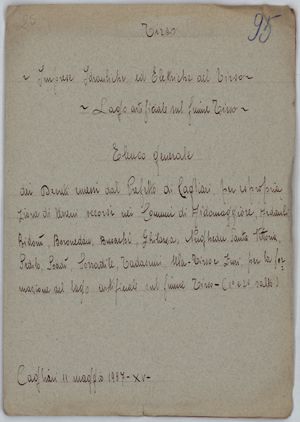 25
95
Tirso
~ Imprese Idrauliche ed Elettriche del Tirso ~
~ Lago artificiale sul fiume Tirso ~
Elenco generale
dei Decreti emessi dal Prefetto di Cagliari, per espropria
zione di terreni occorsi nei Comuni di Aidomaggiore, Ardauli
Bidonì, Boroneddu, Busachi, Ghilarza, Nughedu Santa Vittoria,
Sedilo, Soddì, Sorradile Tadasuni, Ula-Tirso e Zuri, per la for
mazione del lago artificiale sul fiume Tirso - (1° e 2° salto)
Cagliari 11 maggio 1937 - XV -